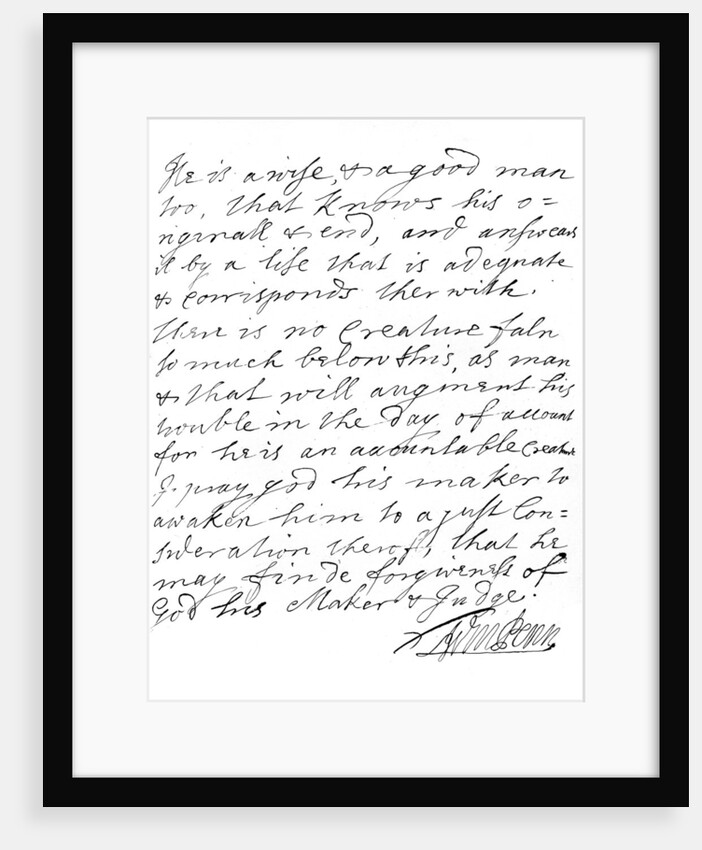 He is a wise, & a good man
too, that knows his o=
riginall & end, and answears
it by a life that is adequate
& corrisponds therwith.
There is no Creature faln
so much below this, as man
& that will augment his
trouble in the day of account
for he is an accountable Creature
I pray god his maker to
awaken him to a just Con=
sideration therof, that he
may finde forgiveness of
God his Maker & Judge.
Wm Penn